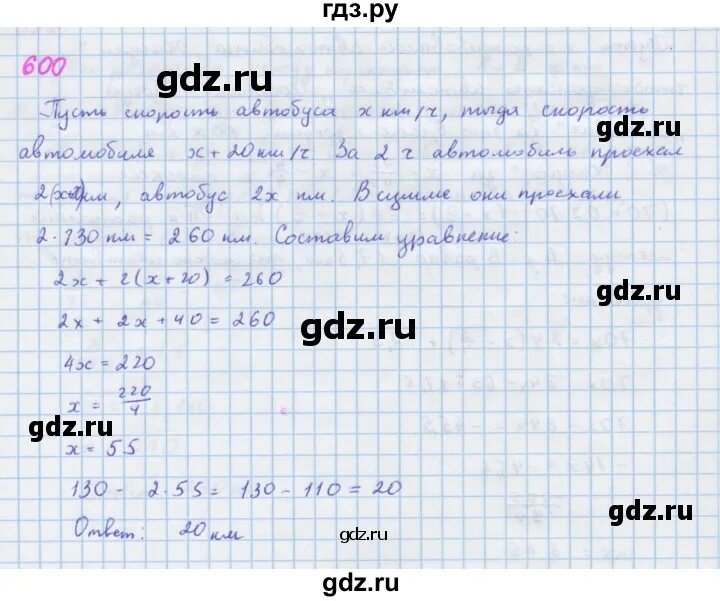 гдз.ру
600
gdz.ru
Пусть скорость автобуса x км/ч, тогда скорость
gdz.ru
автомобиля x + 20 км/ч За 2 ч автомобиль проехал
км, автобус 2x км. В сумме они проехали
2·130 км = 260 км. Составим уравнение:
2x + 2(x+20) = 260
gdz.ru
2x + 2x + 40 = 260
gdz.ru
4x = 220
x = 220/4
gdz.ru
x = 55
130 - 2·55 = 130 - 110 = 20
gdz.ru
Ответ: 20 км
gdz.ru
gdz.ru